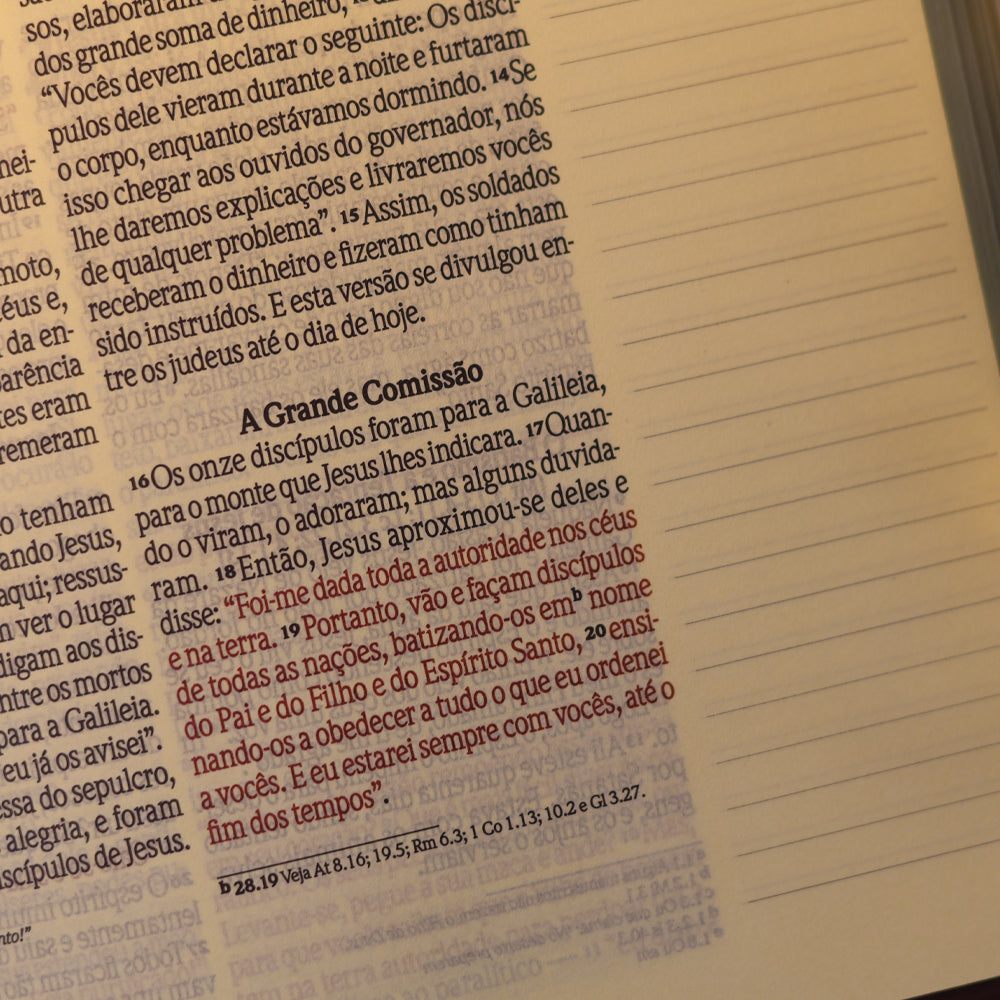 nei-
utra
moto,
éus e,
da en-
arência
tes eram
remeram
o tenham
ando Jesus,
aqui; ressus-
n ver o lugar
digam aos dis-
ntre os mortos
para a Galileia.
eu já os avisei”.
essa do sepulcro,
alegria, e foram
scípulos de Jesus.
nto!”
sos, elaboraram
dos grande soma de dinheiro,
“Vocês devem declarar o seguinte: Os discí-
pulos dele vieram durante a noite e furtaram
o corpo, enquanto estávamos dormindo. 14 Se
isso chegar aos ouvidos do governador, nós
lhe daremos explicações e livraremos vocês
de qualquer problema”. 15 Assim, os soldados
receberam o dinheiro e fizeram como tinham
sido instruídos. E esta versão se divulgou en-
tre os judeus até o dia de hoje.
A Grande Comissão
16 Os onze discípulos foram para a Galileia,
para o monte que Jesus lhes indicara. 17 Quan-
do o viram, o adoraram; mas alguns duvida-
ram. 18 Então, Jesus aproximou-se deles e
disse: “Foi-me dada toda a autoridade nos céus
e na terra. 19 Portanto, vão e façam discípulos
de todas as nações, batizando-os em b nome
do Pai e do Filho e do Espírito Santo, 20 ensi-
nando-os a obedecer a tudo o que eu ordenei
a vocês. E eu estarei sempre com vocês, até o
fim dos tempos”.
b 28.19 Veja At 8.16; 19.5; Rm 6.3; 1 Co 1.13; 10.2 e Gl 3.27.